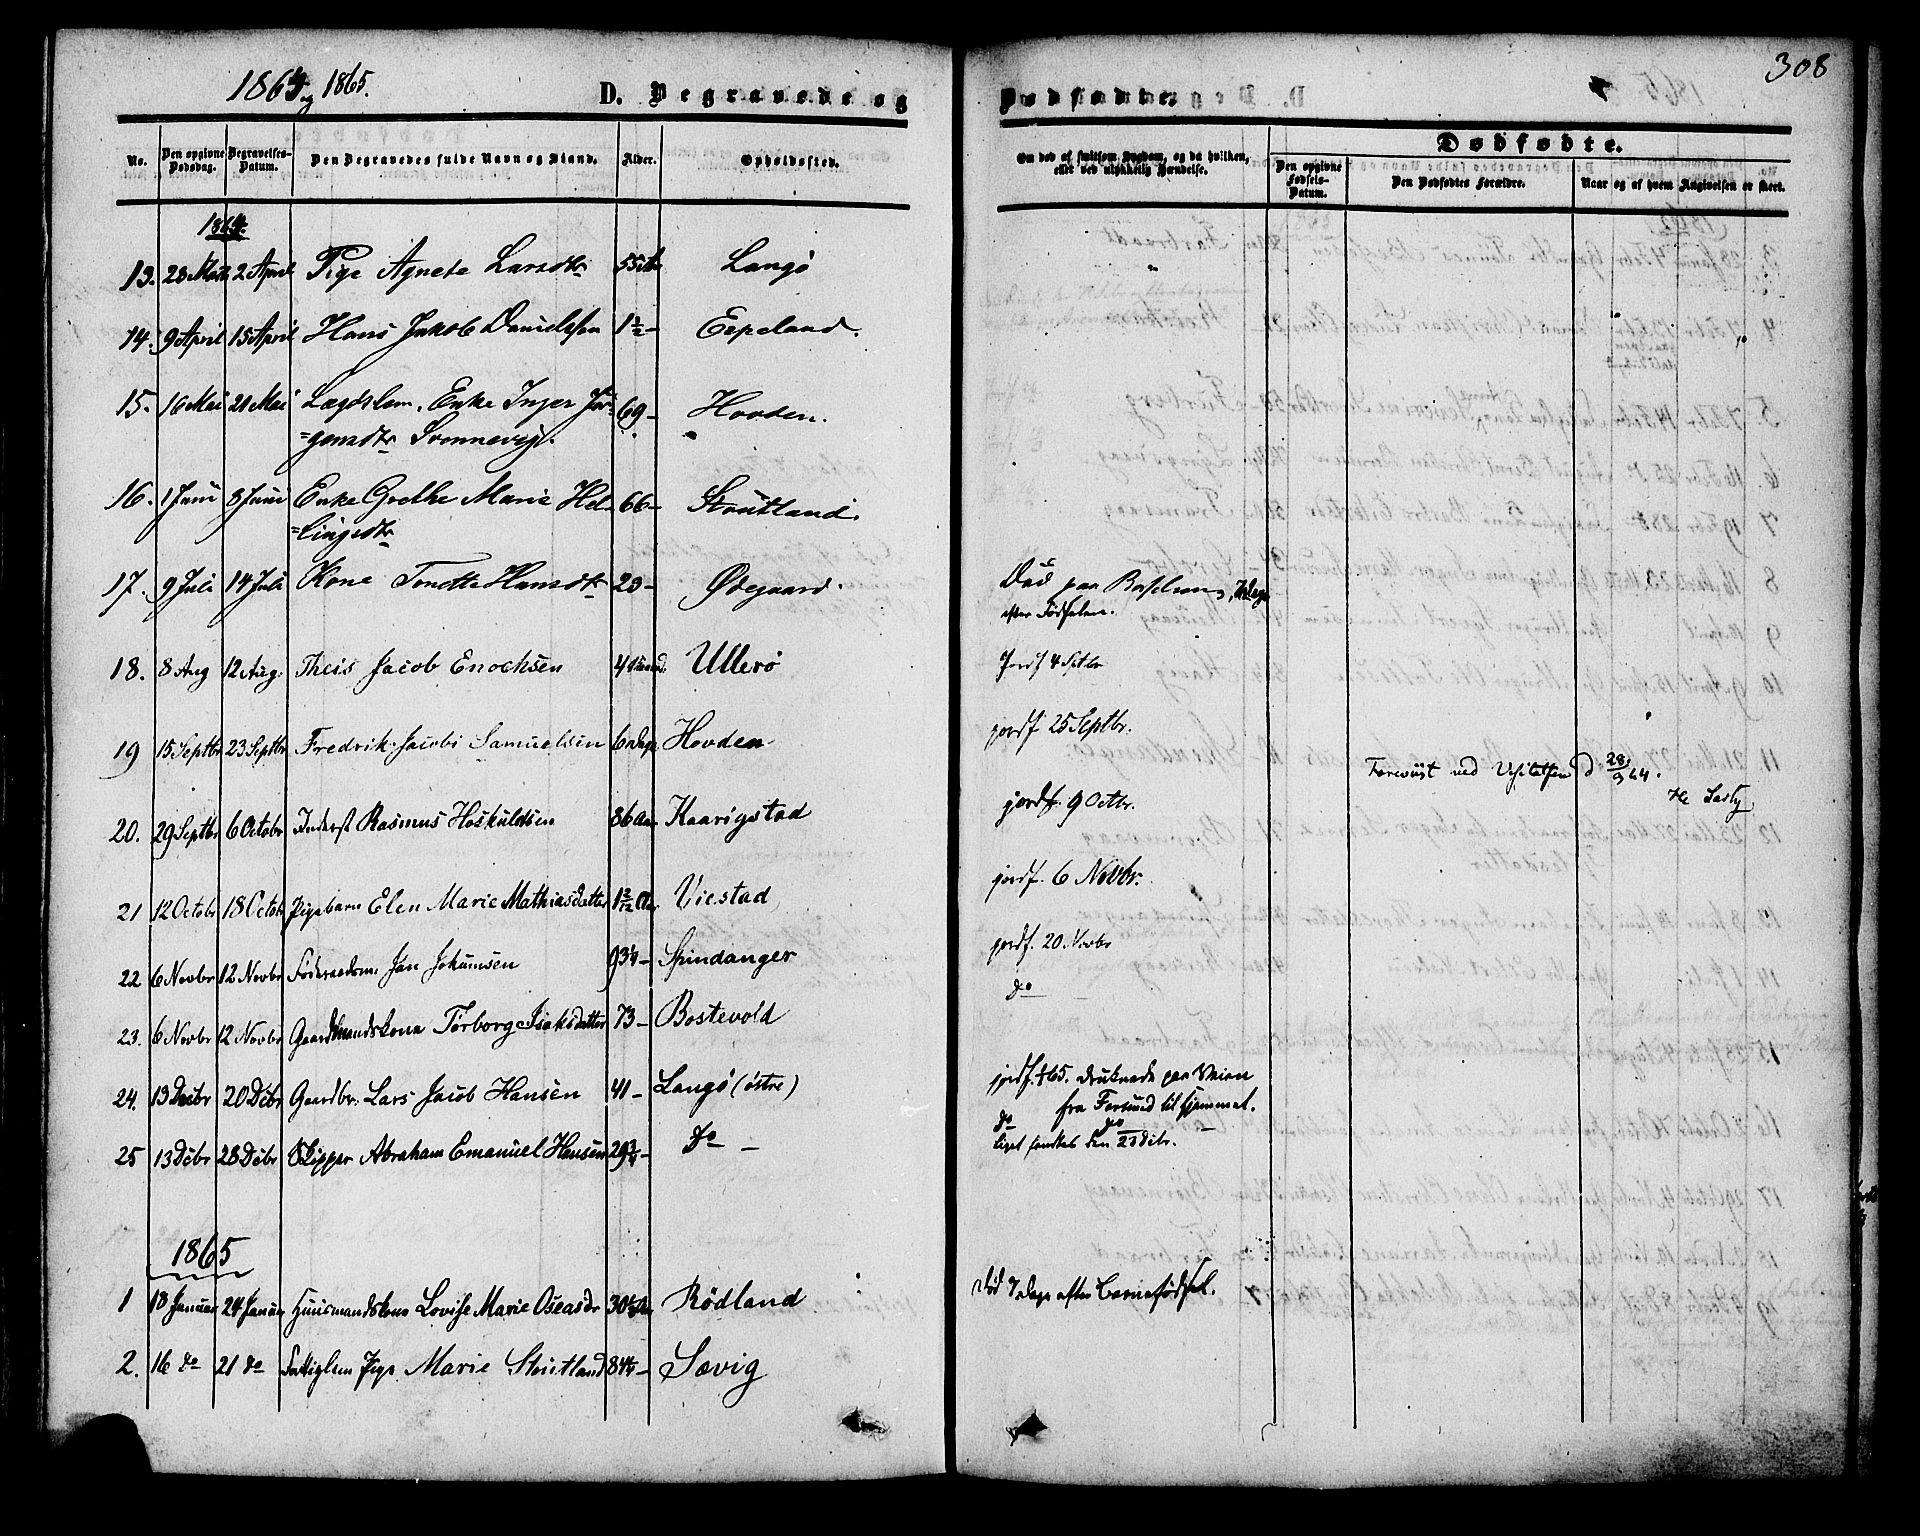 1864 og 1865.
D. Begravede og Dødfødte.
308
No.
Den opgivne Dødsdag.
Begravelses-Datum.
Den Begravedes fulde Navn og Stand.
Alder.
Opholdssted.
Om død af smitsom Sygdom, og da hvilken, eller ved ulykkelig Hændelse.
Dødfødte.
Den opgivne Fødsels-Datum.
Den Dødfødtes Forældre.
Naar og af hvem Angivelsen er skeet.
1864.
13. 28 Marts 2 April Pige Agnete Larsdtr 55 Aar Langø
14. 9 April 15 April Hans Jakob Danielssen 1½ – Espeland.
15. 16 Mai 21 Mai Lægdslem, Enke Inger Jør- 69 – Hovden.
=gensdtr Svennevig.
16. 1 Juni 8 Juni Enke Grethe Marie Hel- 66 – Stoutland.
=lingsdtr
17. 9 Juli 14 Juli Kone Tonette Hansdtr 23 – Ødegaard. Død paa Barselseng, Dage
efter Fødselen.
18. 8 Aug 12 Aug. Theis Jacob Enochsen 4 Ullerø Jordf 4 Sptbr
19 15 Septbr 23 Septbr Fredrik Jacobi Samuelsen 6 Hovden jordf. 25 Septbr.
Foreviist ved Visitatsen d 28/9 64.
20. 29 Septbr 6 Octobr Inderst Rasmus Hoskuldsen 86 Aar Kaarigstad jordf. 9 Octbr.
21 12 Octobr 18 Octob Pigebarn Elen Marie Mathiasdatter 1 2/12 Aar Viestad jordf. 6 Novbr.
22 6 Novbr 12 Novbr Føderaadsm. Jan Jokumsen 93¼ – Spindanger jordf. 20. Novbr
23. 6 Novbr 12 Novbr Gaardmandskone Torborg Isaksdatter 73 – Bostevold do
24. 13 Decbr 20 Dcbr Gaardbr. Lars Jacob Hansen 41 – Langø (østre) jordf. 1/1 65. druknede paa Veien
fra Farsund til Hjemmet.
25 13 Dcbr 28 Dcbr Skipper Abraham Emanuel Hansen 29¾ – do – do do –
Liget fandtes den 23 Dcbr.
1865
1 18 Januar 24 Januar Huusmandskone Lovise Marie Oseasdr 30 Aar Rødland Død 7 Dage efter Barnefødsel.
2. 16 do 21 do Fattiglem Pige Marie Stoutland 84½ – Sævig